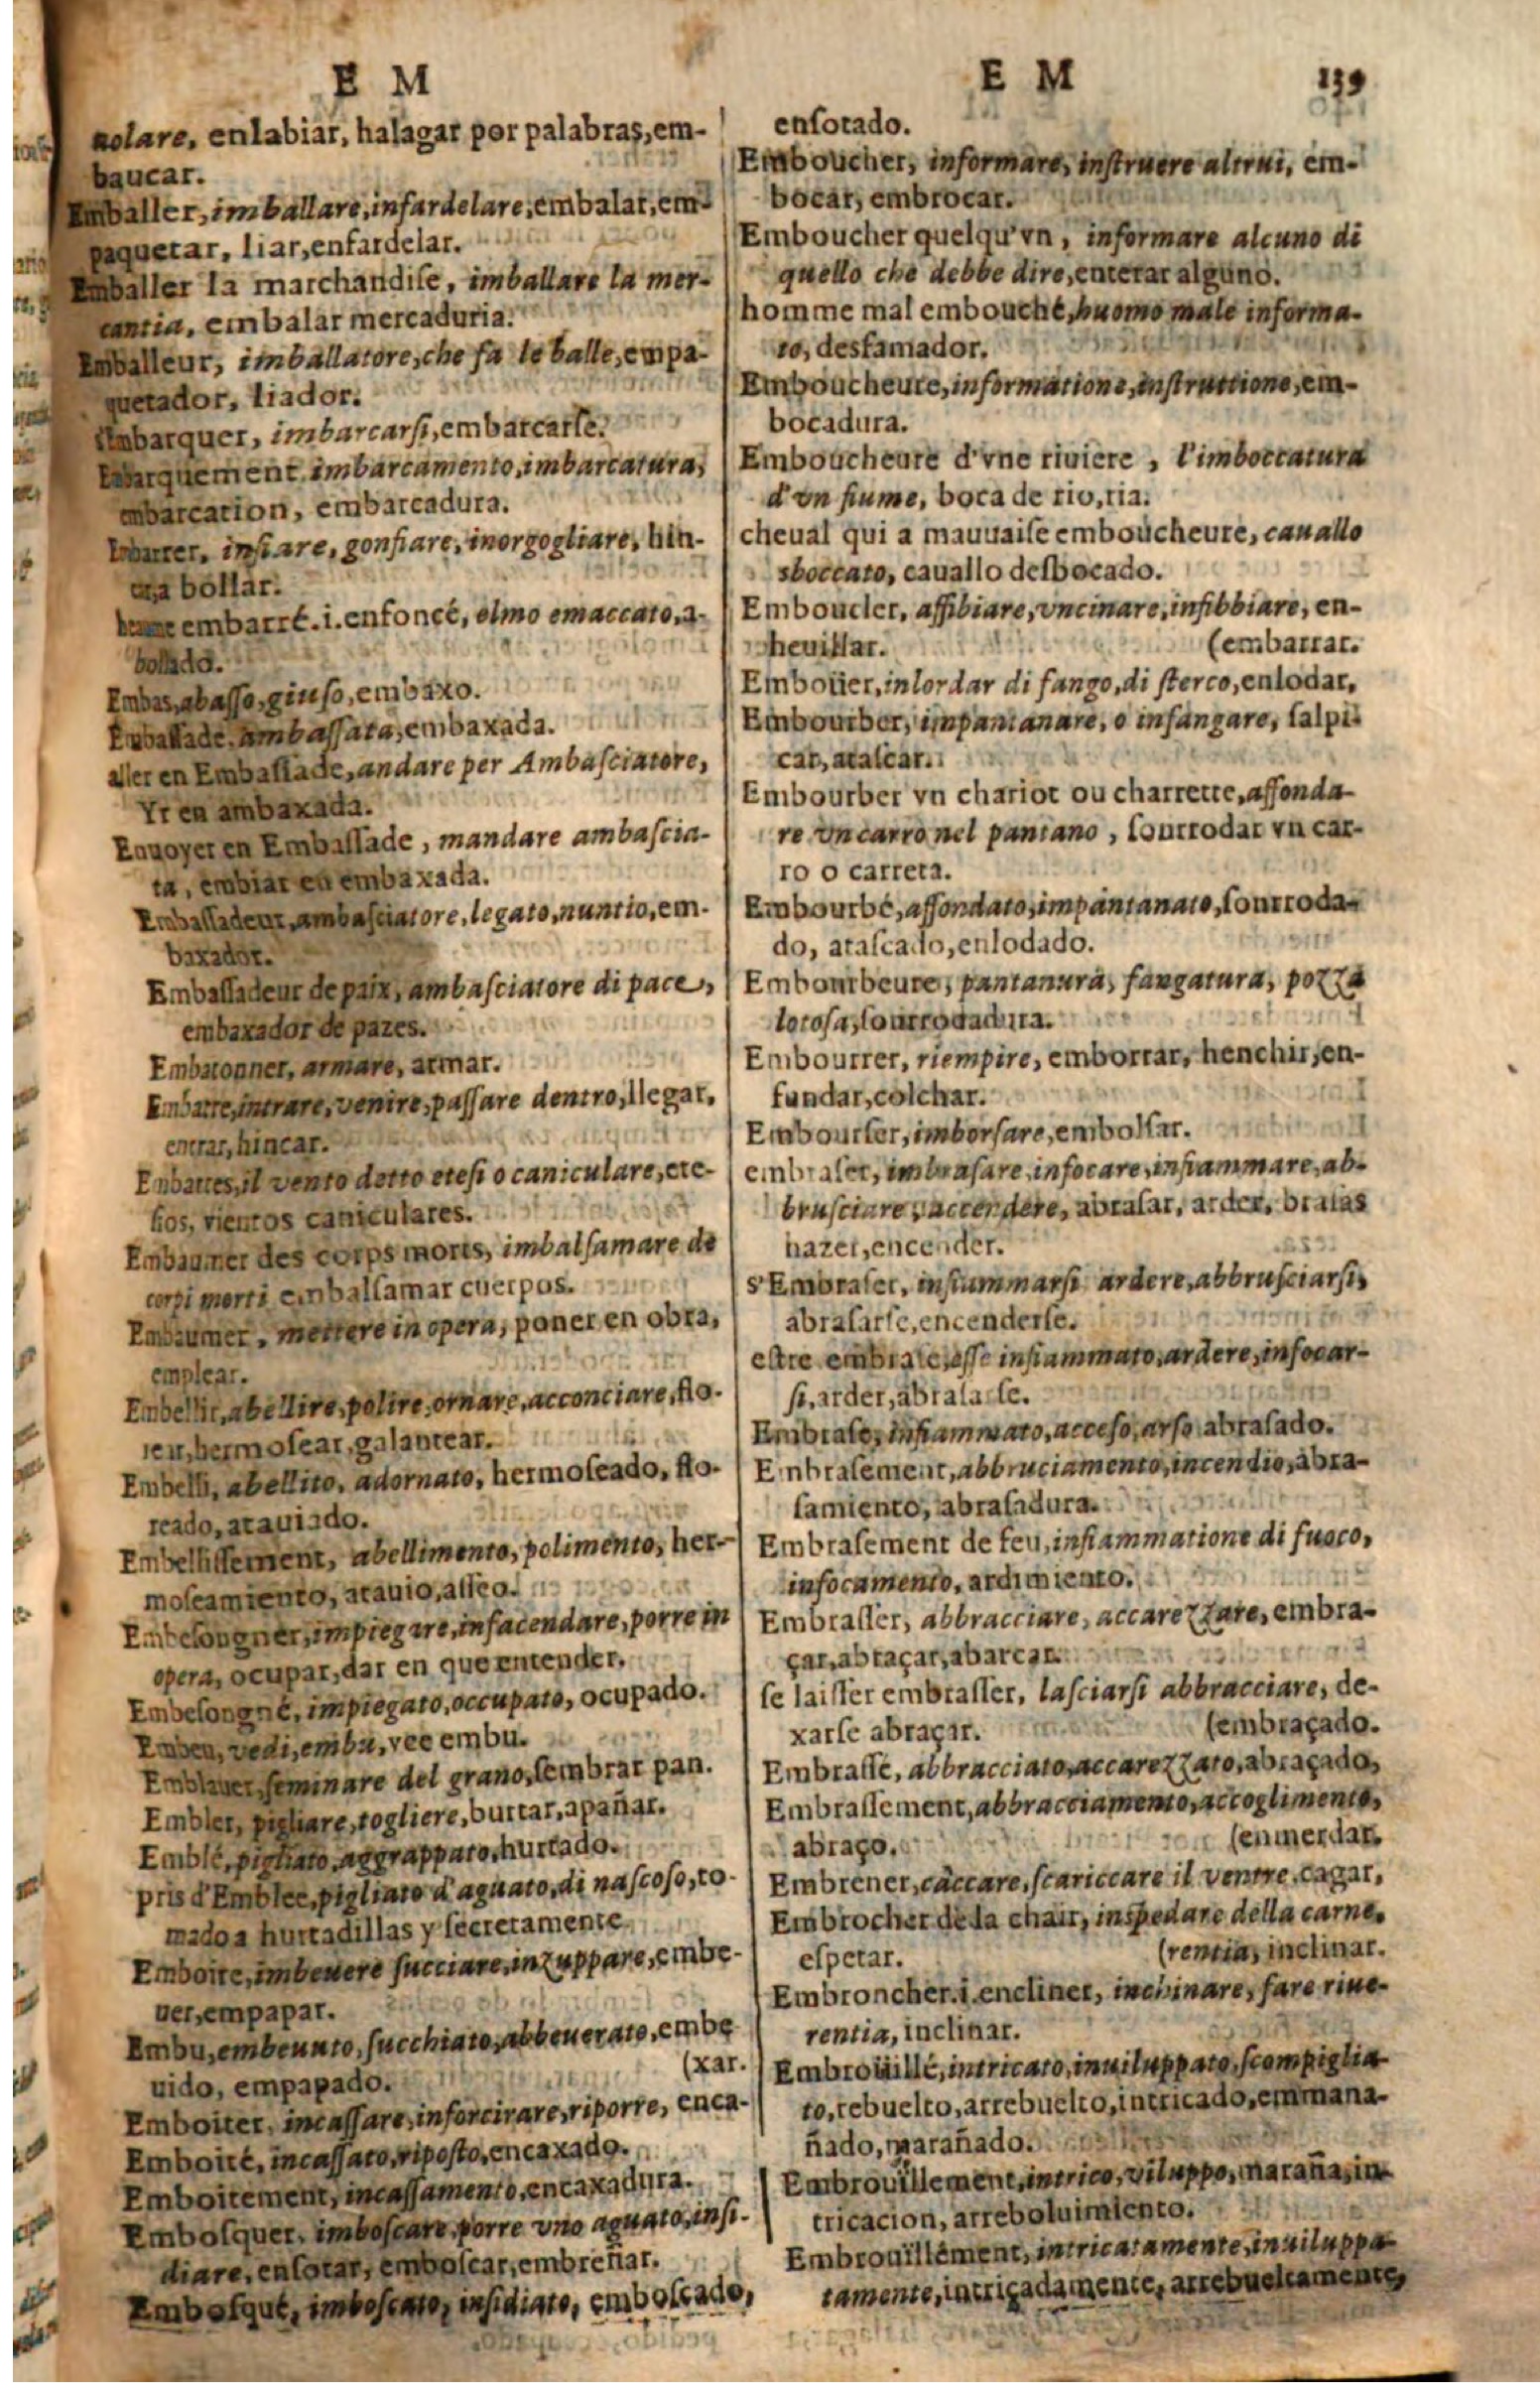 E M
nolare, enlabiar, halagar por palabras, em-
baucar.
Emballer, imballare, infardelare, embalar, em-
paquetar, liar, enfardelar.
Emballer la marchandiſe, imballare la mer-
cantia, embalar mercaduria.
Emballeur, imballatore, che fa le balle, empa-
quetador, liador.
s'Embarquer, imbarcarſi, embarcarſe.
Embarquement, imbarcamento, imbarcatura,
embarcation, embarcadura.
Embarrer, infiare, gonfiare, inorgogliare, hin-
bollar.
embarré.i.enfoncé, elmo emaccato, a-
bollado.
Embas, abaſſo, giuſo, embaxo.
Embaſſade, ambaſſata, embaxada.
aller en Embaſſade, andare per Ambaſciatore,
Yr en ambaxada.
Enuoyer en Embaſſade, mandare ambaſcia-
ta, embiar en embaxada.
Embaſſadeur, ambaſciatore, legato, nuntio, em-
baxador.
Embaſſadeur de paix, ambaſciatore di pace,
embaxador de pazes.
Embatonner, armare, armar.
Embatre, intrare, venire, paſſare dentro, llegar,
entrar, hincar.
Embattes, il vento detto eteſi o caniculare, ete-
ſios, vientos caniculares.
Embaumer des corps morts, imbalſamare de
corpi morti embalſamar cuerpos.
Embaumer, mettere in opera, poner en obra,
emplear.
Embellir, abellire, polire, ornare, acconciare, flo-
rear, hermoſear, galantear.
Embelli, abellito, adornato, hermoſeado, flo-
reado, atauiado.
Embelliſſement, abellimento, polimento, her-
moſeamiento, atauio, aſſeo.
Embeſongner, impiegare, infacendare, porre in
opera, ocupar, dar en que entender.
Embeſongné, impiegato, occupato, ocupado.
Embeu, vedi, embu, vee embu.
Emblauer, ſeminare del grano, ſembrar pan.
Embler, pigliare, togliere, burtar, apañar.
Emblé, pigliato, aggrappato, hurtado.
pris d'Emblee, pigliato d'aguato, di naſcoſo, to-
mado a hurtadillas y ſecretamente
Emboire, imbeuere ſucciare, inzuppare, embe-
uer, empapar.
Embu, embeuuto, ſucchiato, abbeuerato, embe
uido, empapado. (xar.
Emboiter, incaſſare, inforcirare, riporre, enca-
Emboité, incaſſato, ripoſto, encaxado.
Emboitement, incaſſamento, encaxadura.
Emboſquer, imboſcare, porre vno aguato, inſi-
diare, enſotar, emboſcar, embreñar.
Emboſqué, imboſcato, inſidiato, emboſcado,
E M 139
enſotado.
Emboucher, informare, inſtruere altrui, em-
bocar, embrocar.
Emboucher quelqu'vn, informare alcuno di
quello che debbe dire, enterar alguno.
homme mal embouché, huomo male informa-
to, desfamador.
Emboucheure, informatione, inſtruttione, em-
bocadura.
Emboucheure d'vne riuiere, l'imboccatura
d'vn fiume, boca de rio, ria.
cheual qui a mauuaiſe emboucheure, cauallo
sboccato, cauallo deſbocado.
Emboucler, affibiare, vncinare, infibbiare, en-
heuillar. (embarrar.
Emboüer, inlordar di fango, di ſterco, enlodar,
Embourber, impantanare, o infangare, ſalpi-
car, ataſcar.
Embourber vn chariot ou charrette, affonda-
re vn carro nel pantano, ſourrodar vn car-
ro o carreta.
Embourbé, affondato, impantanato, ſourroda-
do, ataſcado, enlodado.
Embourbeure, pantanura, fangatura, pozza
lotoſa, ſourrodadura.
Embourrer, riempire, emborrar, henchir, en-
fundar, colchar.
Embourſer, imborſare, embolſar.
embraſer, imbraſare, infocare, infiammare, ab-
bruſciare, accendere, abraſar, arder, braſas
hazer, encender.
s'Embraſer, infiammarſi ardere, abbruſciarſi,
abraſarſe, encenderſe.
eſtre embraſé, eſſe infiammato, ardere, infocar-
ſi, arder, abraſarſe.
Embraſe, infiammato, acceſo, arſo abraſado.
Embraſement, abbruciamento, incendio, abra-
ſamiento, abraſadura.
Embraſement de feu, infiammatione di fuoco,
infocamento, ardimiento.
Embraſſer, abbracciare, accarezzare, embra-
çar, abraçar, abarcar.
ſe laiſſer embraſſer, laſciarſi abbracciare, de-
xarſe abraçar. (embraçado.
Embraſſé, abbracciato, accarezzato, abraçado,
Embraſſement, abbracciamento, accoglimento,
abraço. (enmerdar.
Embrener, caccare, ſcariccare il ventre, cagar,
Embrocher de la chair, inſpedare della carne,
eſpetar. (rentia, inclinar.
Embroncher.i.encliner, inchinare, fare riue-
rentia, inclinar.
Embroüillé, intricato, inuiluppato, ſcompiglia-
to, rebuelto, arrebuelto, intricado, emmana-
ñado, marañado.
Embrouïllement, intrico, viluppo, maraña, in-
tricacion, arreboluimiento.
Embrouïllément, intricatamente, inuiluppa-
tamente, intriçadamente, arrebueltamente,